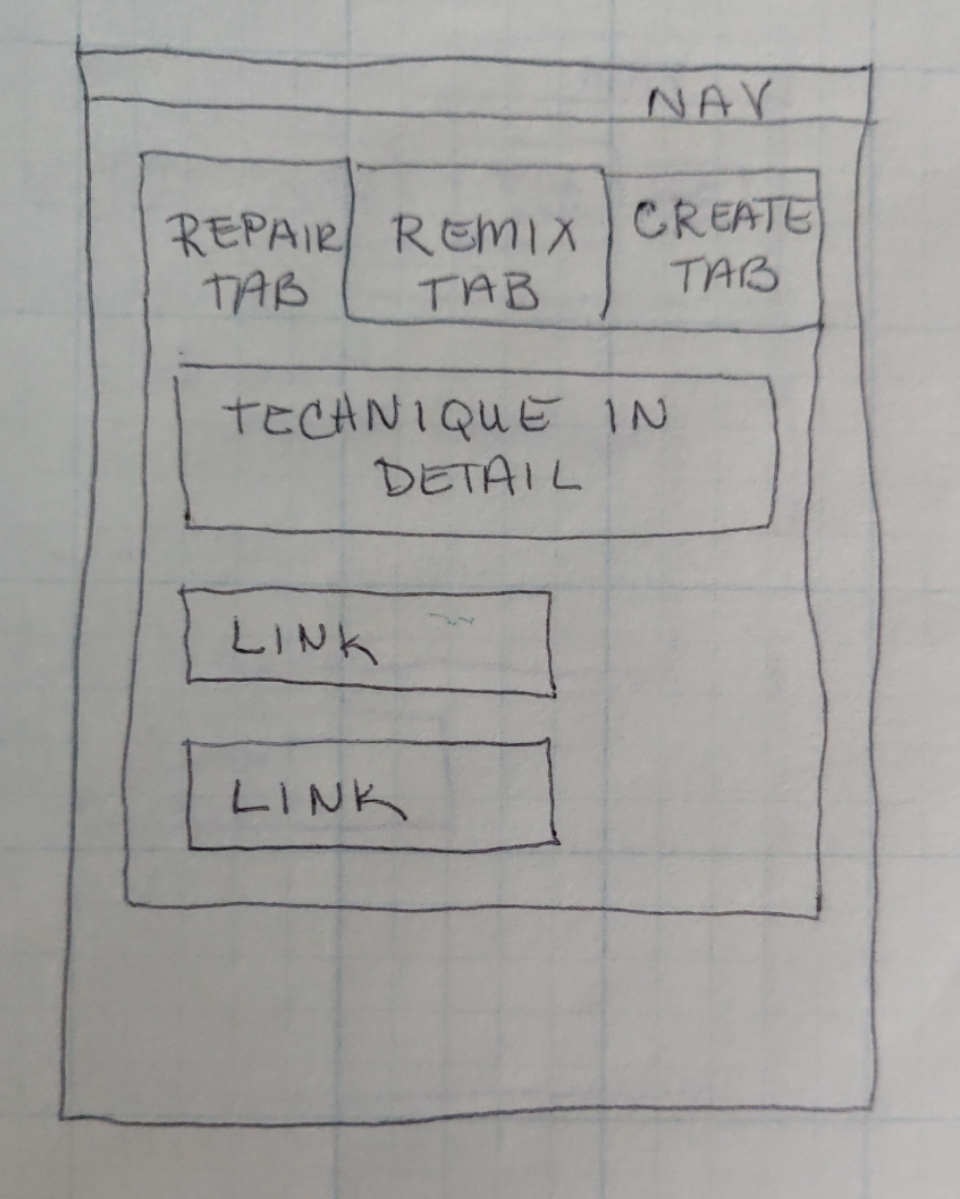 NAV
REPAIR
TAB
REMIX
TAB
CREATE
TAB
TECHNIQUE IN
DETAIL
LINK
LINK